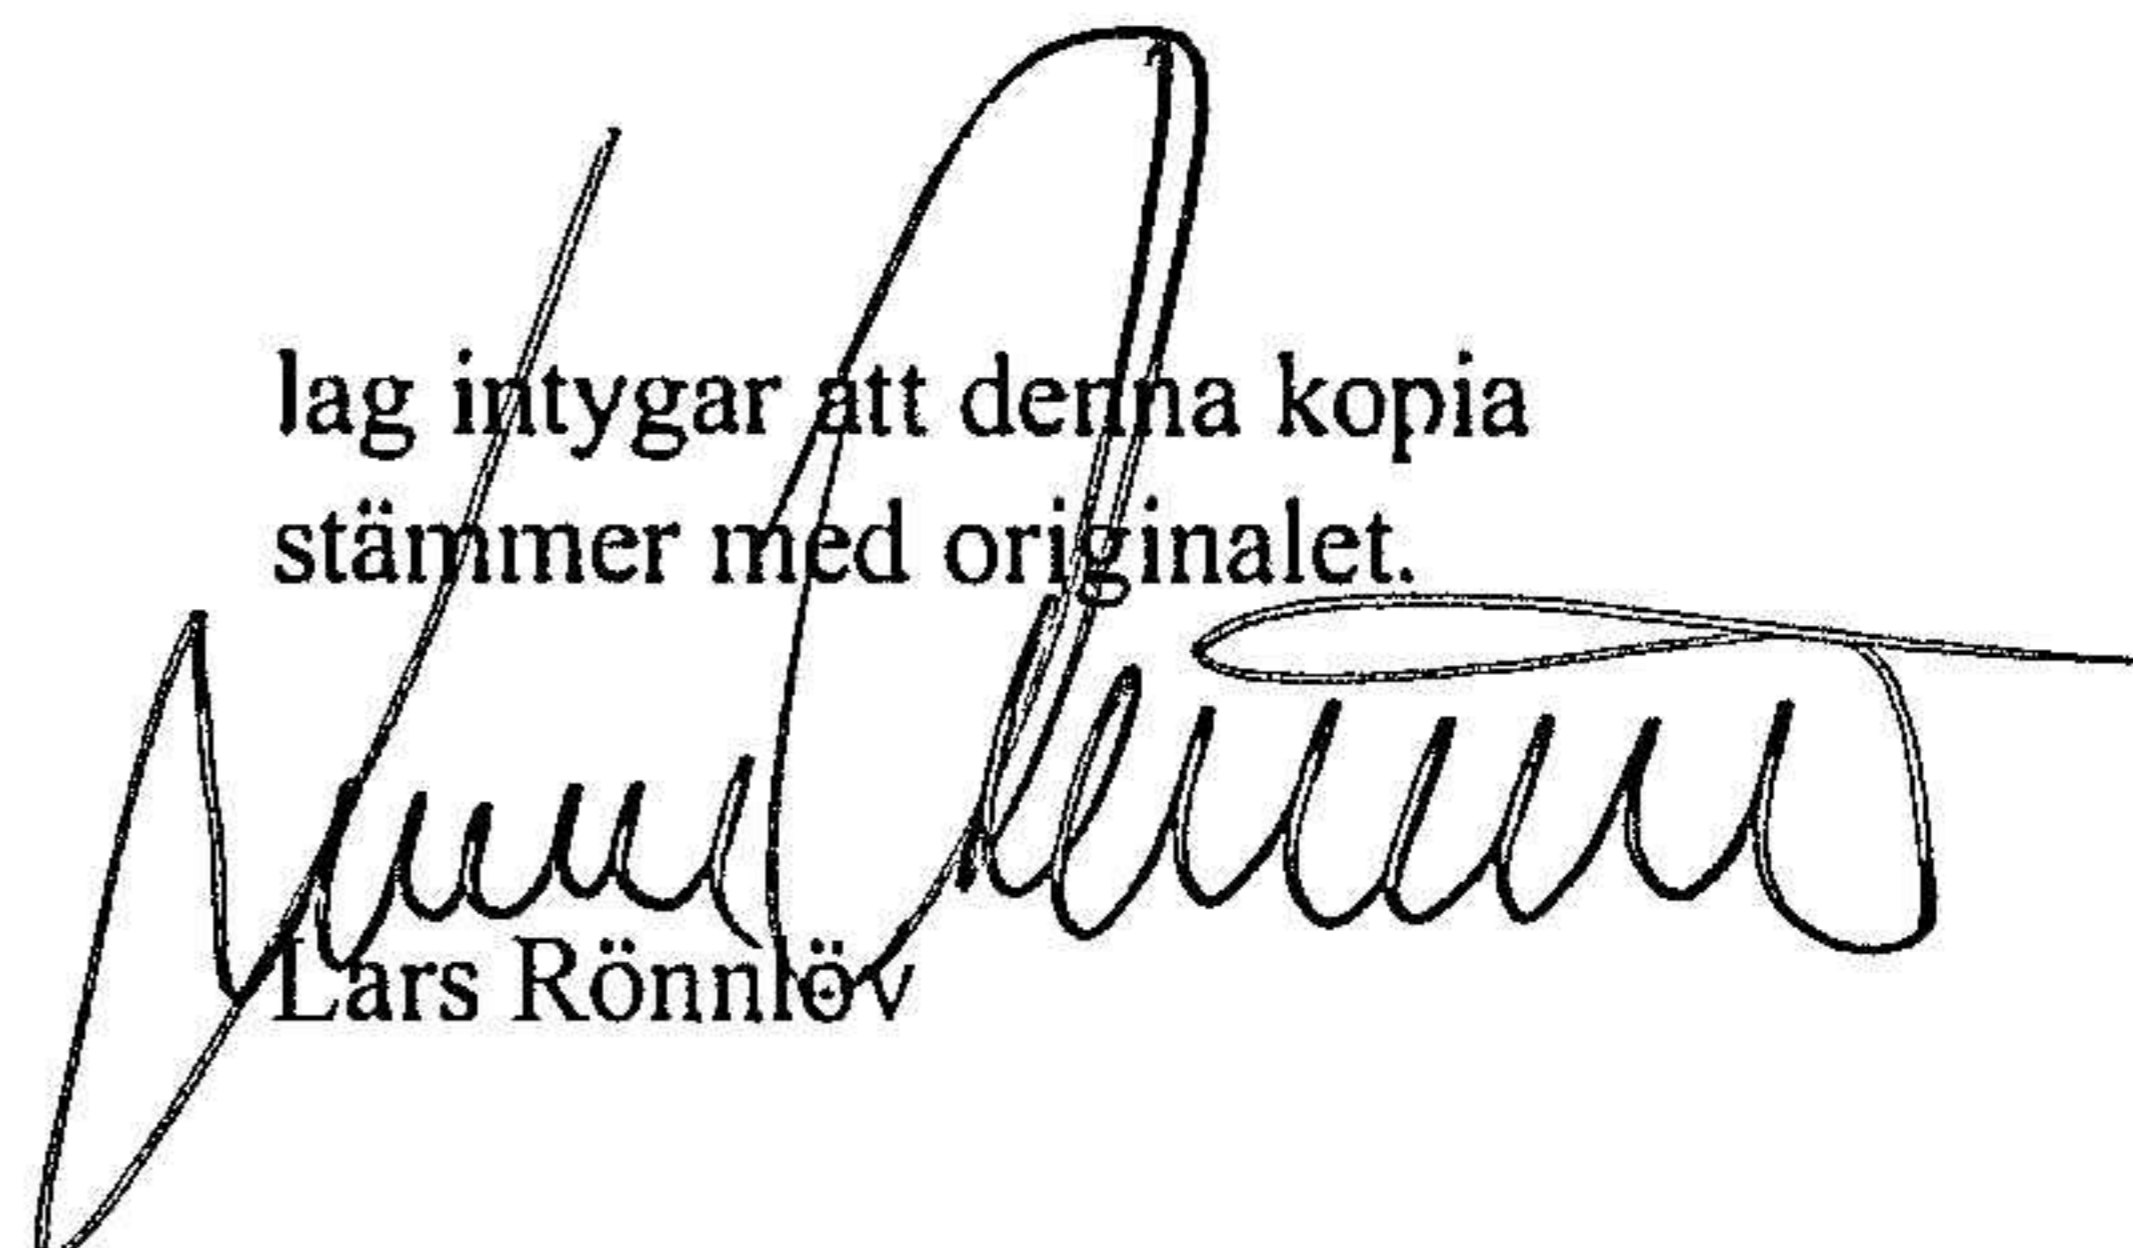 Jag intygar att denna kopia
stämmer med originalet.
Lars Rönnlöv